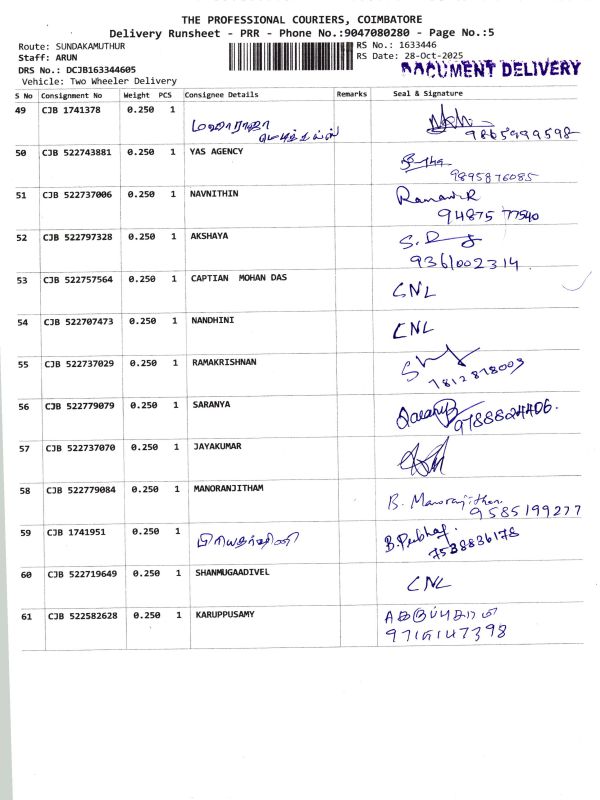 THE PROFESSIONAL COURIERS, COIMBATORE
Delivery Runsheet - PRR - Phone No.:9047080280 - Page No.:5
Route: SUNDAKAMUTHUR
RS No.: 1633446
Staff: ARUN
RS Date: 28-Oct-2025
DRS No.: DCJB163344605
DOCUMENT DELIVERY
Vehicle: Two Wheeler Delivery
S No Consignment No Weight PCS Consignee Details Remarks Seal & Signature
49 CJB 1741378 0.250 1 மஹாராஜா
மெடிக்கல்ஸ்
9865999598
50 CJB 522743881 0.250 1 YAS AGENCY
9895876085
51 CJB 522737006 0.250 1 NAVNITHIN
94875 77540
52 CJB 522797328 0.250 1 AKSHAYA
9361002314
53 CJB 522757564 0.250 1 CAPTIAN MOHAN DAS CNL
54 CJB 522707473 0.250 1 NANDHINI CNL
55 CJB 522737029 0.250 1 RAMAKRISHNAN
7812878003
56 CJB 522779079 0.250 1 SARANYA
9788824406.
57 CJB 522737070 0.250 1 JAYAKUMAR
58 CJB 522779084 0.250 1 MANORANJITHAM B. Manoranjitham
9585199277
59 CJB 1741951 0.250 1 பிரியதர்ஷினி
7538836178
60 CJB 522719649 0.250 1 SHANMUGAADIVEL CNL
61 CJB 522582628 0.250 1 KARUPPUSAMY
9716147398